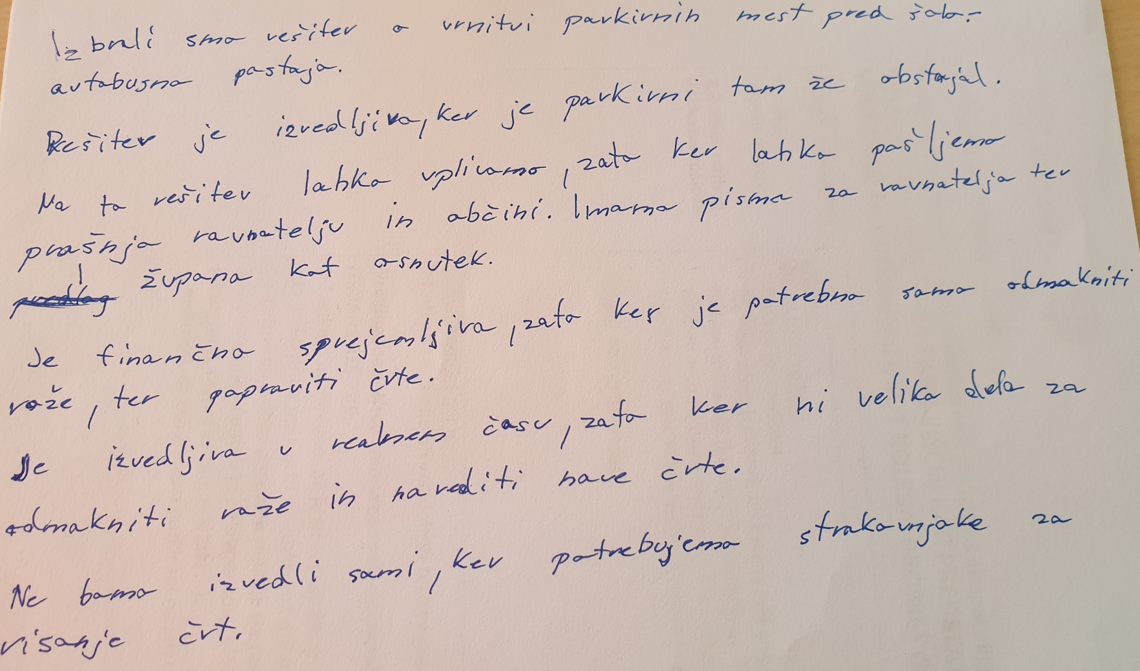 Izbrali smo rešitev o vrnitvi parkirnih mest pred šolo-
avtobusno postajo.
Rešitev je izvedljiva, ker je parkirni tam že obstajal.
Na to rešitev lahko vplivamo, zato ker lahko pošljemo
prašnja ravnatelju in občini. Imamo pisma za ravnatelja ter
župana kot osnutek.
Je finančno sprejemljiva, zato ker je potrebno samo odmakniti
rože, ter popraviti črte.
Je izvedljiva v realnem času, zato ker ni veliko dela za
odmakniti rože in narediti nove črte.
Ne bomo izvedli sami, ker potrebujemo strokovnjake za
risanje črt.